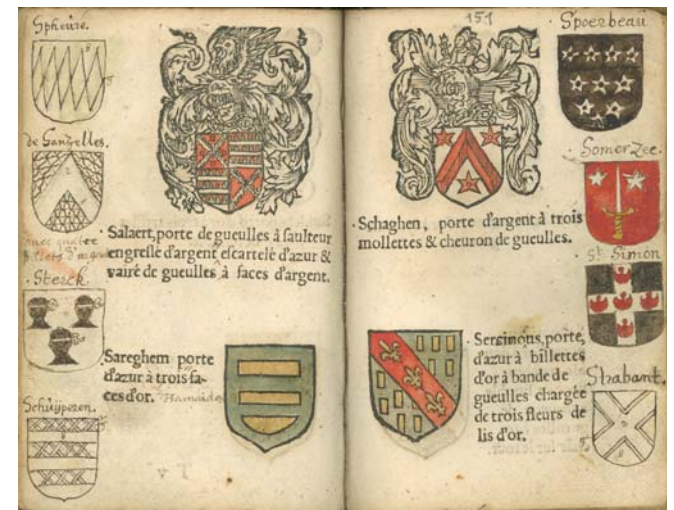 Spheüre.
de Gauzelles.
avec quatre
billets d'argent
Sterck.
Schüijperen.
Salaert, porte de gueulles à saulteur
engreslé d'argent, escartelé d'azur &
vairé de gueulles à faces d'argent.
Sareghem porte
d'azur à trois fa-
ces d'or. Hamaides
151
Schaghen, porte d'argent à trois
mollettes & cheuron de gueulles.
Sercimous, porte,
d'azur à billettes
d'or à bande de
gueulles chargée
de trois fleurs de
lis d'or.
Spoerbeaü
Somerzee.
St Simon
Strabant.